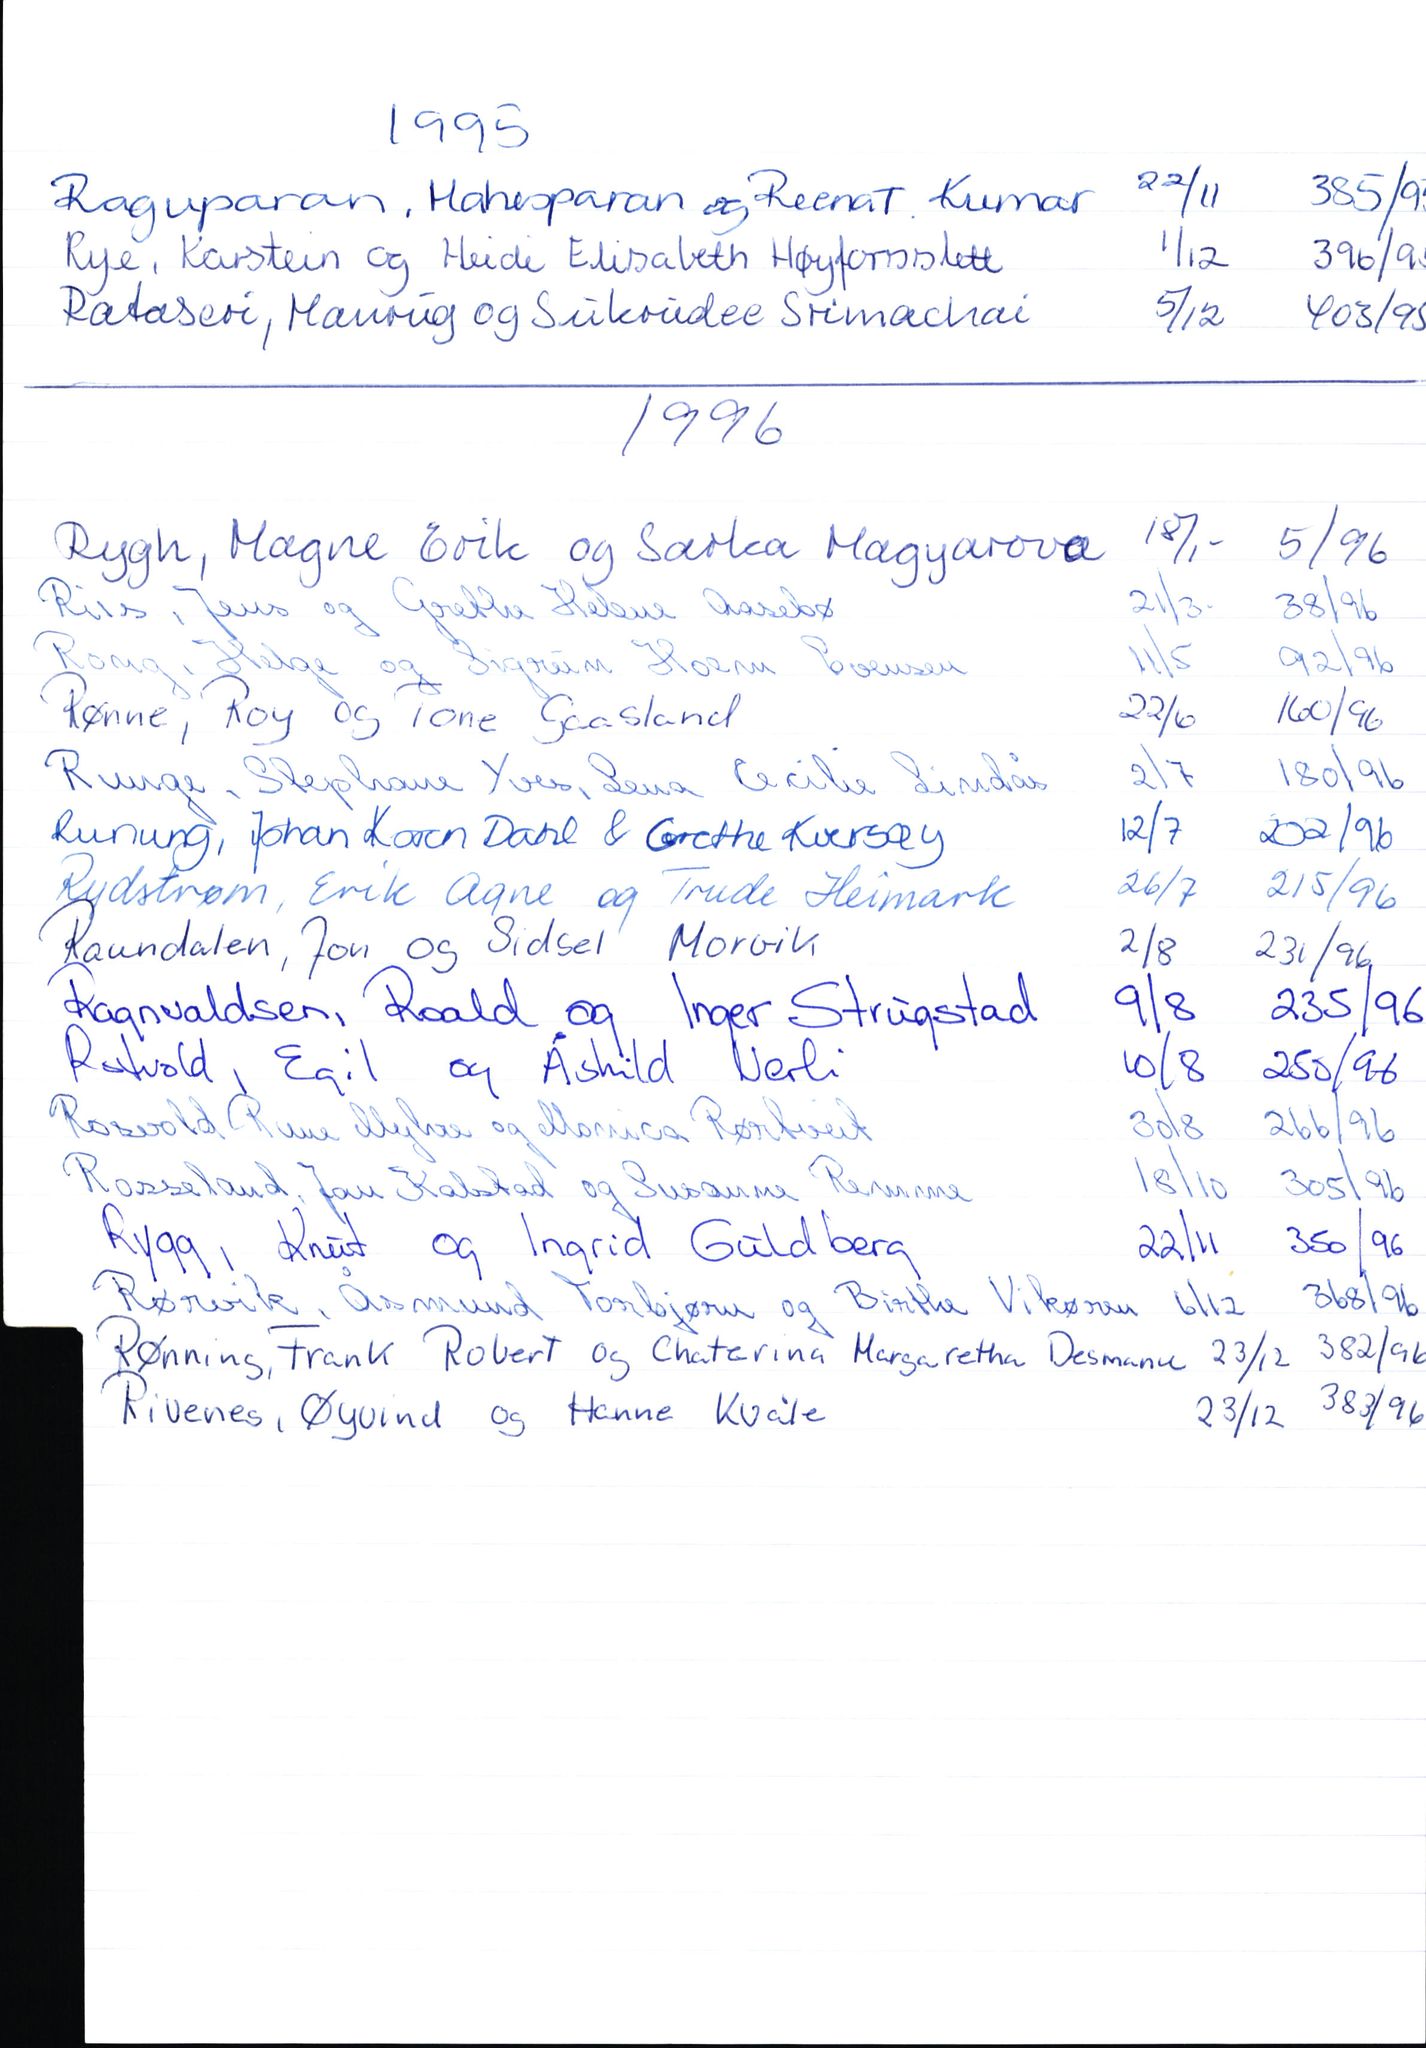 1995
Raguparan, Mahesparan og Reenat. Kumar 22/11 385/95
Rye, Karstein og Heidi Elisabeth Høyforsslett 1/12 396/95
Rataseri, Manrug og Sukrudee Srimachai 5/12 403/95
1996
Rygh, Magne Erik og Sarka Magyarova 18/1- 5/96
Riis, Jens og Grethe Helene Aasebø 21/3- 38/96
Rong, Helge og Sigrun Horm Evensen 11/5 92/96
Rønne, Roy og Tone Gaasland 22/6 160/96
Runge, Stephane Yves, Lena Cecilie Lindås 2/7 180/96
Runung, Johan Koren Dahl & Grethe Kversøy 12/7 202/96
Rydstrøm, Erik Agne og Trude Heimark 26/7 215/96
Raundalen, Jon og Sidsel Morvik 2/8 231/96
Ragnvaldsen, Roald og Inger Strugstad 9/8 235/96
Rotvold, Egil og Åshild Nerli 10/8 250/96
Rosvold Rune Myhre og Monica Rørtveit 30/8 266/96
Rosseland, Jan Kalstad og Susanne Remme 18/10 305/96
Rygg, Knut og Ingrid Guldberg 22/11 350/96
Rørvik, Åsmund Torbjørn og Birthe Vikøren 6/12 368/96
Rønning, Frank Robert og Chaterina Margaretha Desmanie 23/12 382/96
Rivenes, Øyvind og Hanne Kvåle 23/12 383/96